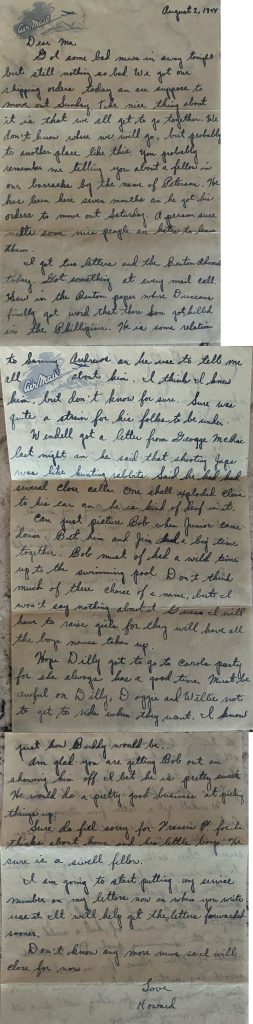 Air Mail
August 2, 1944
Dear Ma.
Got some bad news in away tonight
but still nothing so bad. We got our
shipping orders today an are suppose to
move out Sunday. The nice thing about
it is that we all get to go together. We
don't know where we will go, but probably
to another place like this. You probably
remember me telling you about a fellow in
our barracks by the name of Peterson. He
has been here seven months an he got his
orders to move out Saturday. A person sure
meets some nice people an hates to leave
them.
I got two letters and the Benton
today. Got something at every mail call.
Saw in the Benton paper where Duncans
finally got word that there son got killed
in the Phillipine. He is some relation
to Sammy Andrews an he use to tell me
all about him. I think I knew
Air Mail
him, but don't know for sure. Sure was
quite a strain for his folks to be under.
Wendell got a letter from George
last night an he said that shooting Japs
was like hunting rabbits. Said he had had
several close calls. One shell exploded close
to his ear an he is kind of deaf in it.
Can just picture Bob when Junior came
down. Bet him and Jim had a big time
together. Bob must of had a wild time
up to the swimming pool. Don't think
much of there choice of a name, but I
won't say nothing about it. Guess I will
have to raise girls for they will have all
the boys names taken up.
Hope Dilly got to go to Carols party
for she always has a good time. Must be
awful on Dilly, Doggie and Willie not
to get to ride when they want. I know
just how Buddy would be.
Am glad you are getting Bob out an
showing him off. I bet he is pretty sweet.
He would do a pretty good business at picking
things up.
Sure do feel sorry for Francis for he
thinks about home and his little boys. He
sure is a swell fellow.
I am going to start putting my service
number on my letters now an when you write
use it. It will help get the letters forwarded
sooner.
Don't know any more news so I will
close for now.
Love
Howard